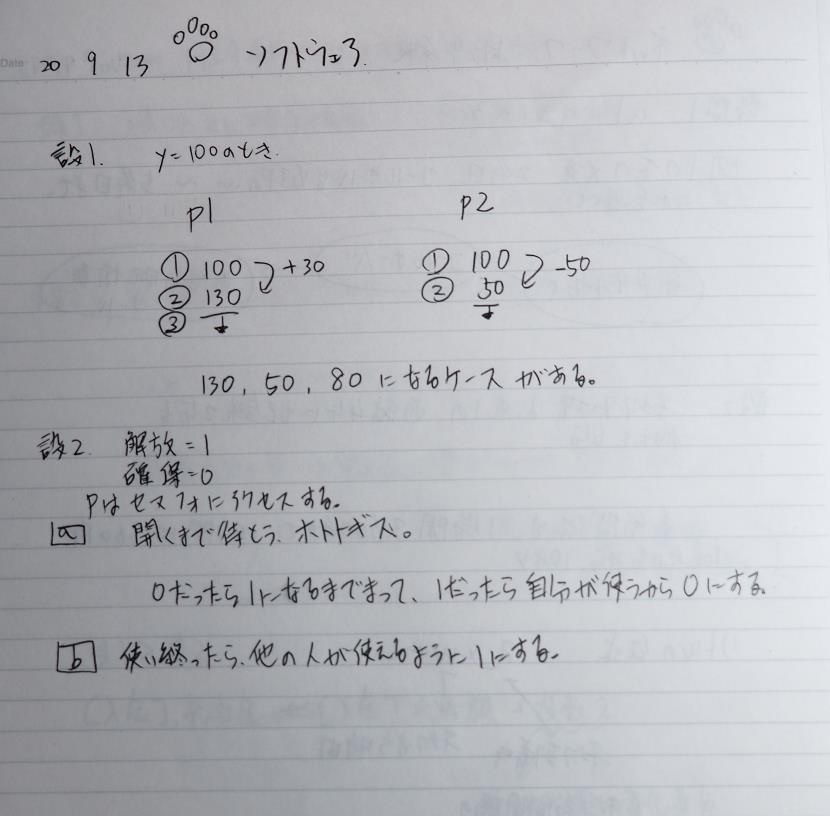 Date 20 9 13 ソフトウェア.
設1. y=100のとき.
P1 P2
① 100 +30 ① 100 -50
② 130 ② 50
③
130, 50, 80 になるケースがある。
設2. 解放=1
確保=0
Pはセマフォにアクセスする。
a 開くまで待とう、ホトトギス。
0だったら1になるまでまって、1だったら自分が使うから0にする。
b 使い終ったら、他の人が使えるように1にする。